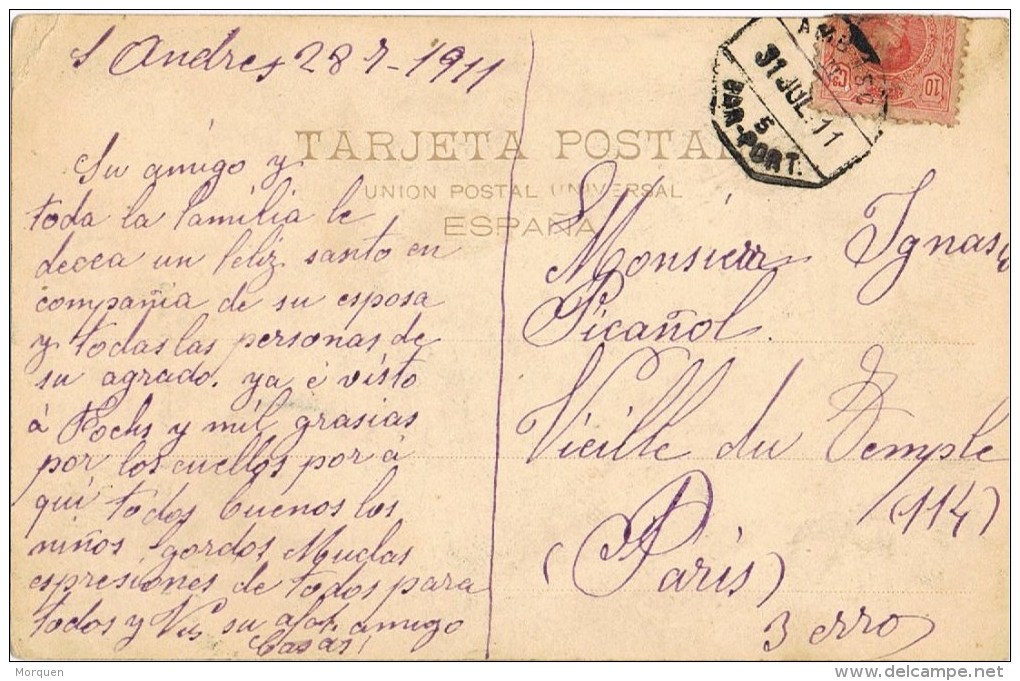 S Andres 28 7-1911
Su amigo y
toda la familia le
decea un feliz santo en
compañia de su esposa
y todas las personas de
su agrado. ya é visto
á Fochs y mil grasias
por los cuellos por á
qui todos buenos los
niños gordos Muchas
espresiones de todos para
todos y Vds su afmo amigo
Casas
TARJETA POSTAL
UNION POSTAL UNIVERSAL
ESPAÑA
AMB
31 JUL. 11
5
BAR-PORT.
10 Cs
Monsieur Ignasio
Picañol
Vieille du Temple
(114)
(Paris)
3 erro
Morquen
delcampe.net